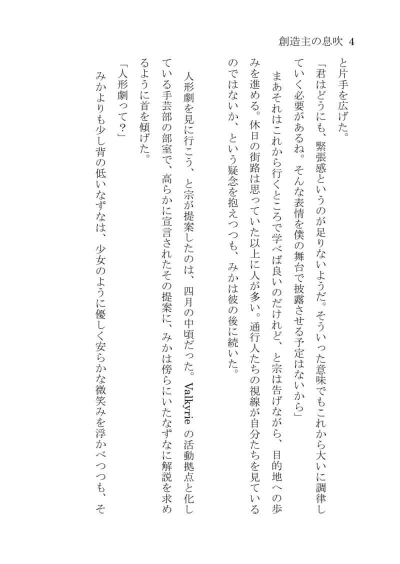 創造主の息吹 4
と片手を広げた。
「君はどうにも、緊張感というのが足りないようだ。そういった意味でもこれから大いに調律し
ていく必要があるね。そんな表情を僕の舞台で披露させる予定はないから」
まあそれはこれから行くところで学べば良いのだけれど、と宗は告げながら、目的地への歩
みを進める。休日の街路は思っていた以上に人が多い。通行人たちの視線が自分たちを見ている
のではないか、という疑念を抱えつつも、みかは彼の後に続いた。
人形劇を見に行こう、と宗が提案したのは、四月の中頃だった。Valkyrie の活動拠点と化し
ている手芸部の部室で、高らかに宣言されたその提案に、みかは傍らにいたなずなに解説を求め
るように首を傾げた。
「人形劇って？」
みかよりも少し背の低いなずなは、少女のように優しく安らかな微笑みを浮かべつつも、そ